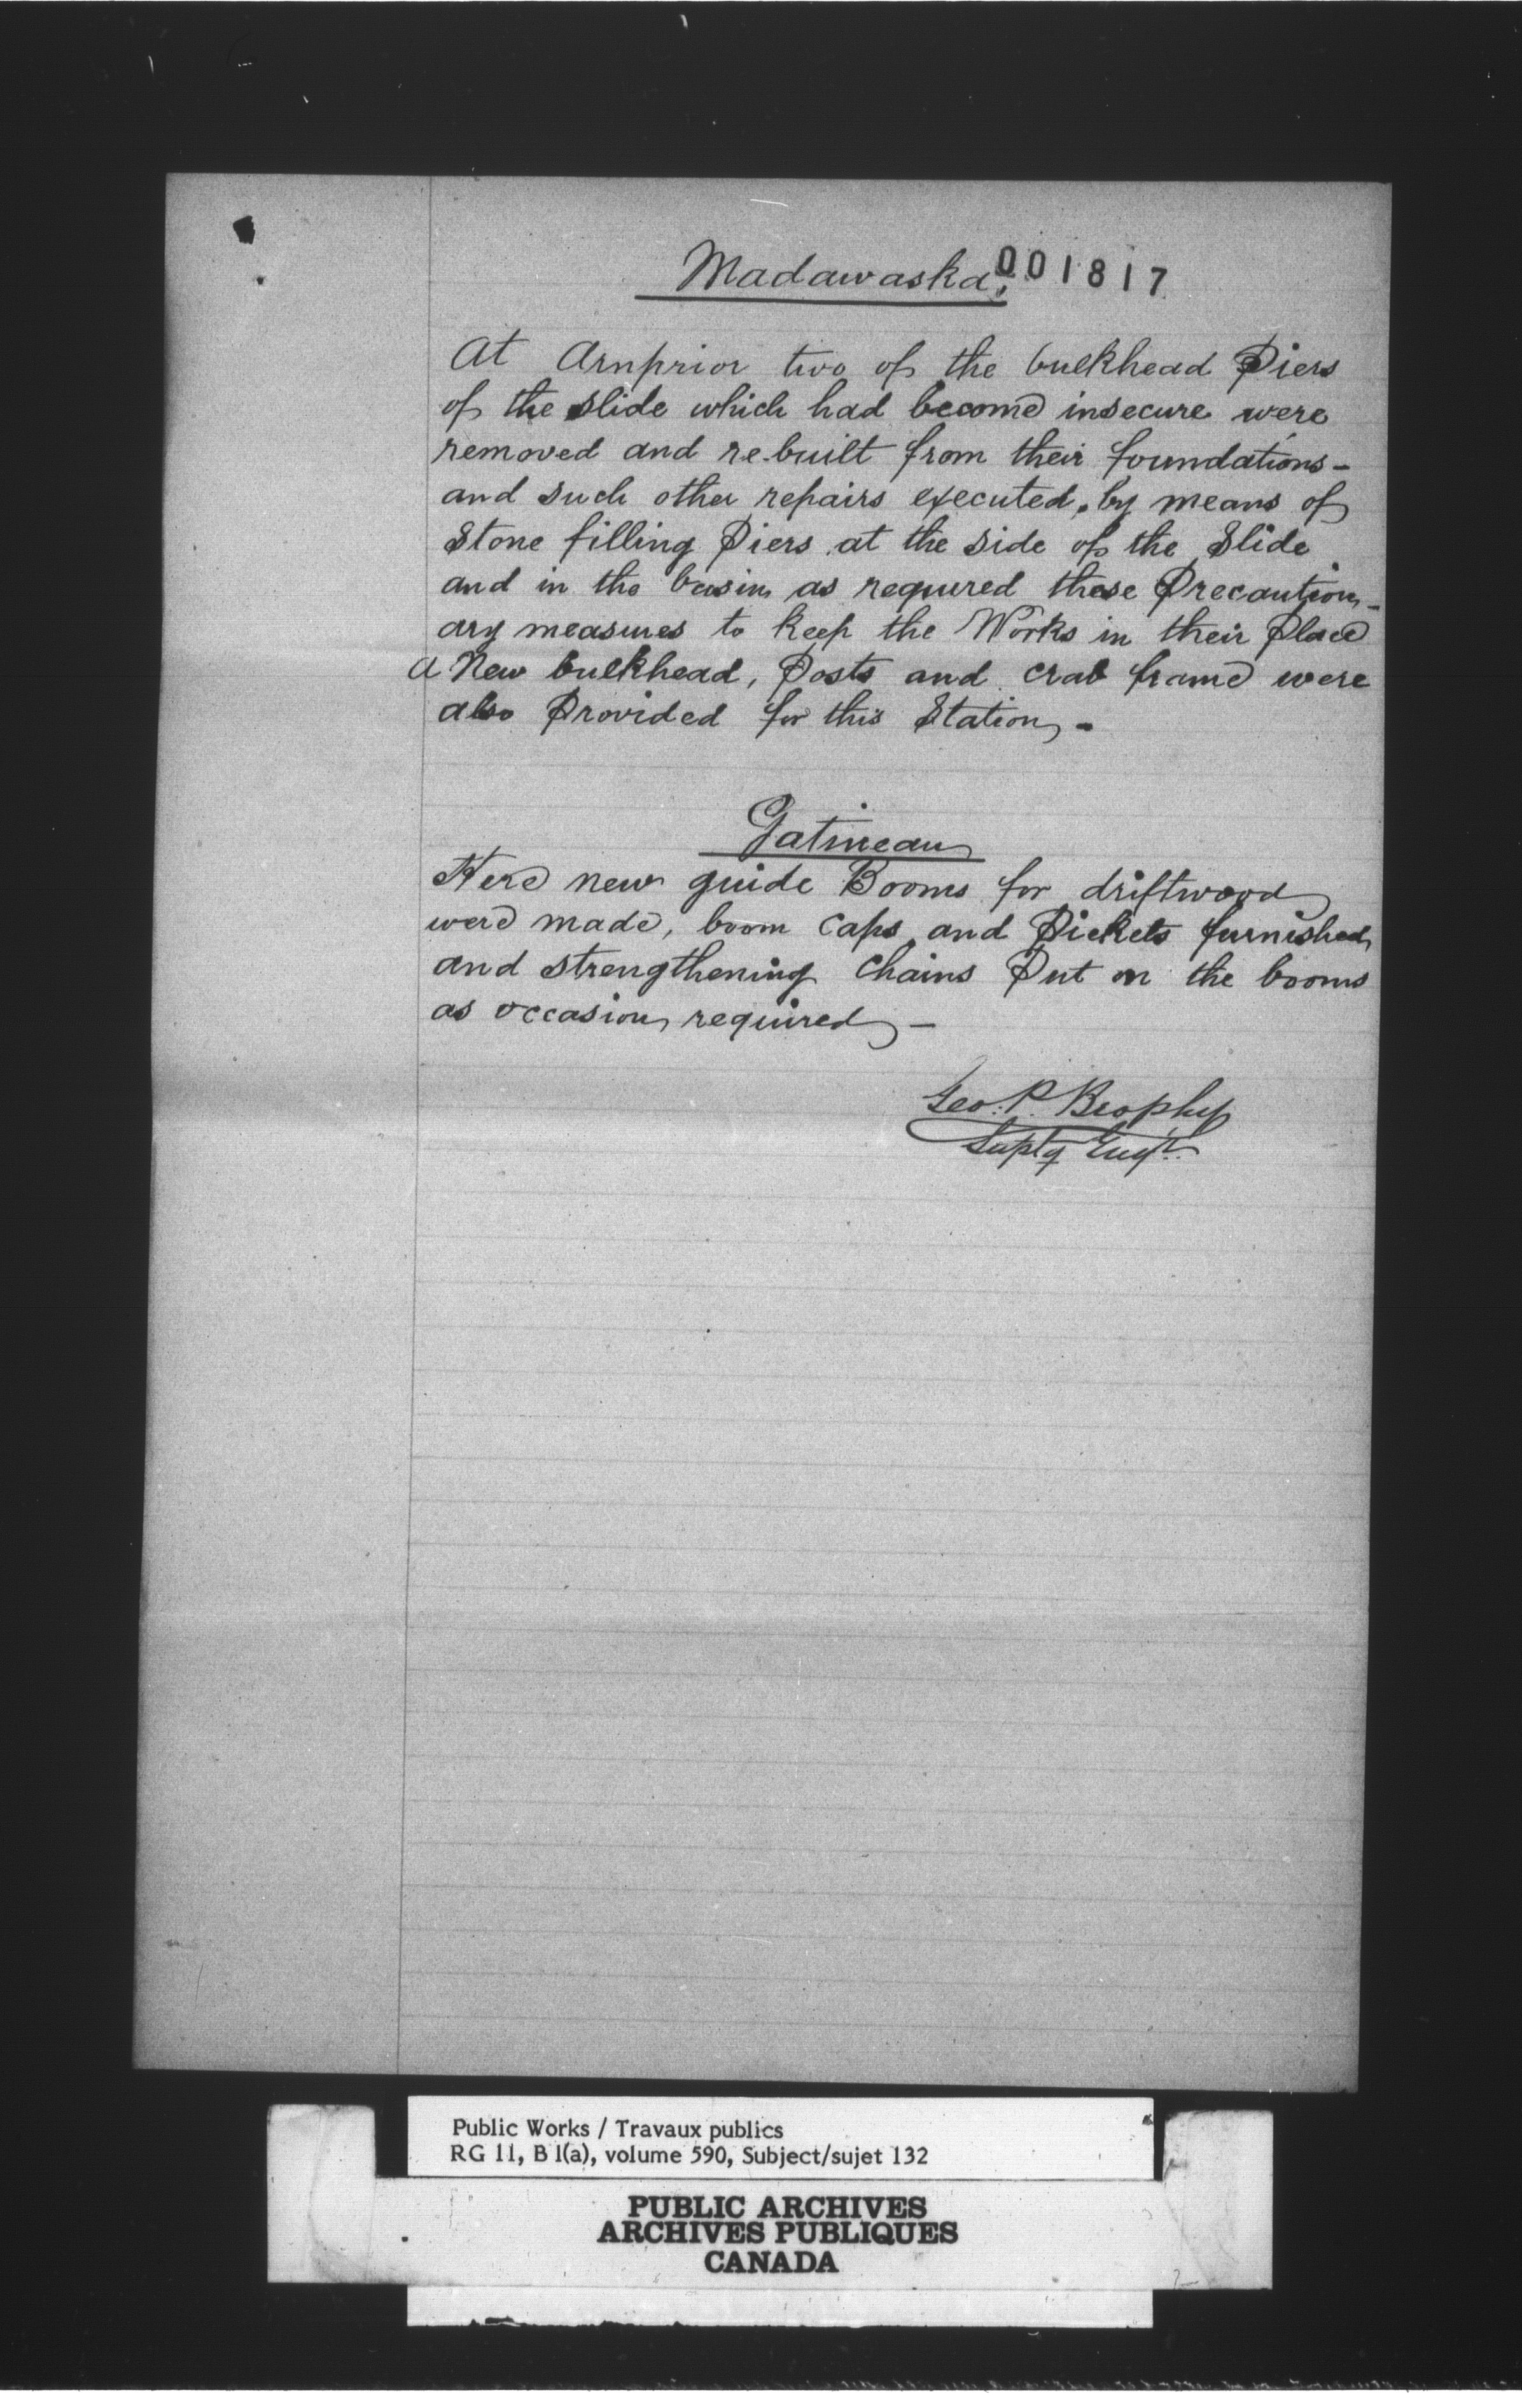 Madawaska.
001817
At Arnprior two of the bulkhead Piers
of the slide which had become insecure were
removed and re-built from their foundations -
and such other repairs executed, by means of
Stone filling Piers at the side of the Slide
and in the basin as required these Precaution-
ary measures to keep the Works in their Place
A New bulkhead, Posts and crab frame were
also Provided for this Station -
Gatineau
Here new guide Booms for driftwood
were made, boom caps and Pickets furnished
and strengthening chains Put on the booms
as occasion required -
Geo. P. Brophy
Suptg Engr.
Public Works / Travaux publics
RG 11, B 1(a), volume 590, Subject/sujet 132
PUBLIC ARCHIVES
ARCHIVES PUBLIQUES
CANADA